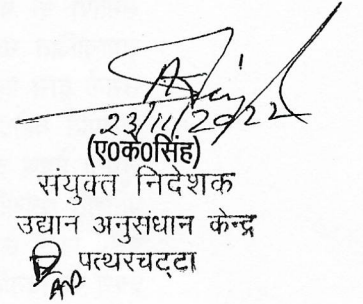 23/11/2022
(ए०क०सिंह)
संयुक्त निदेशक
उद्यान अनुसंधान केन्द्र
पत्थरचट्टा